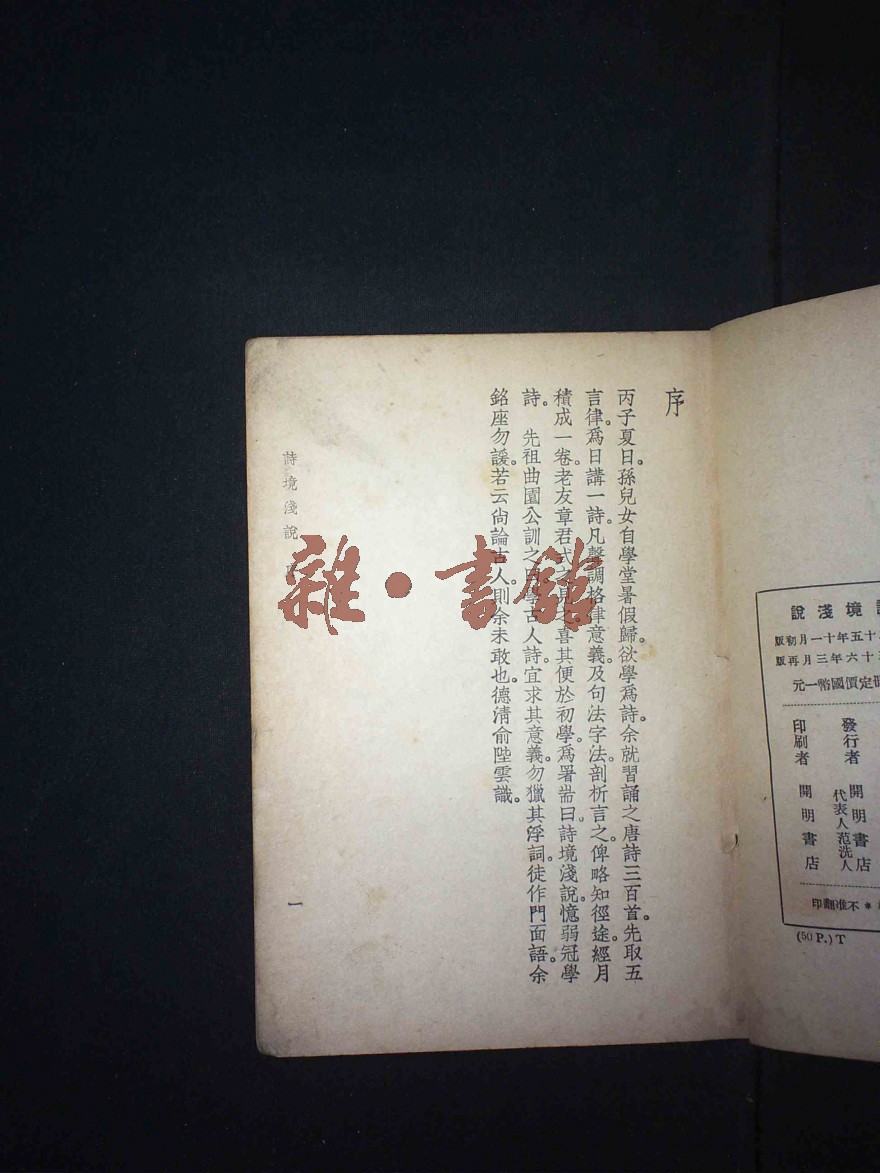 序
丙子夏日。孫兒女自學堂暑假歸。欲學爲詩。余就習誦之唐詩三百首。先取五
言律。爲日講一詩。凡聲調格律意義。及句法字法。剖析言之。俾略知徑途。經月
積成一卷。老友章君式之見之。喜其便於初學。爲署耑曰詩境淺說。憶弱冠學
詩。 先祖曲園公訓之曰。學古人詩。宜求其意義。勿獵其浮詞。徒作門面語。余
銘座勿諼。若云尙論古人。則余未敢也。德淸俞陛雲識。
詩境淺說
一
雜·書館
境淺說
十五年十一月初版
十六年三月再版
定價國幣一元
發行者 開明書店
代表人范洗人
印刷者 開明書店
＊不准翻印
(50 P.) T